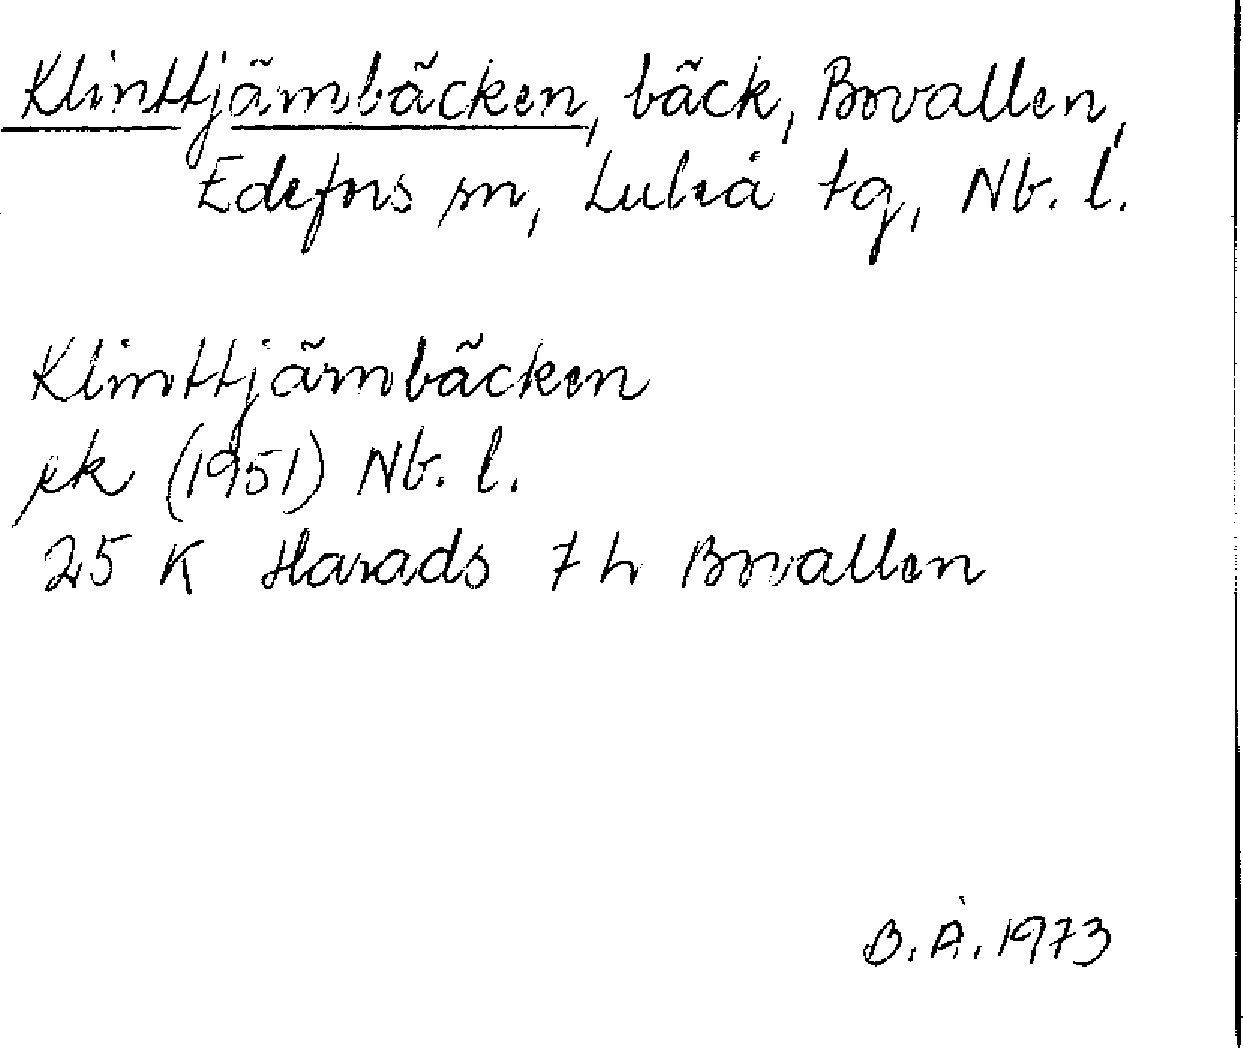 Klinttjärnbäcken, bäck, Bovallen,
Edefors sn, Luleå tg, Nb. l.
Klinttjärnbäcken
ek (1951) Nb. l.
25 K Harads 7 h Bovallen
B.Å. 1973